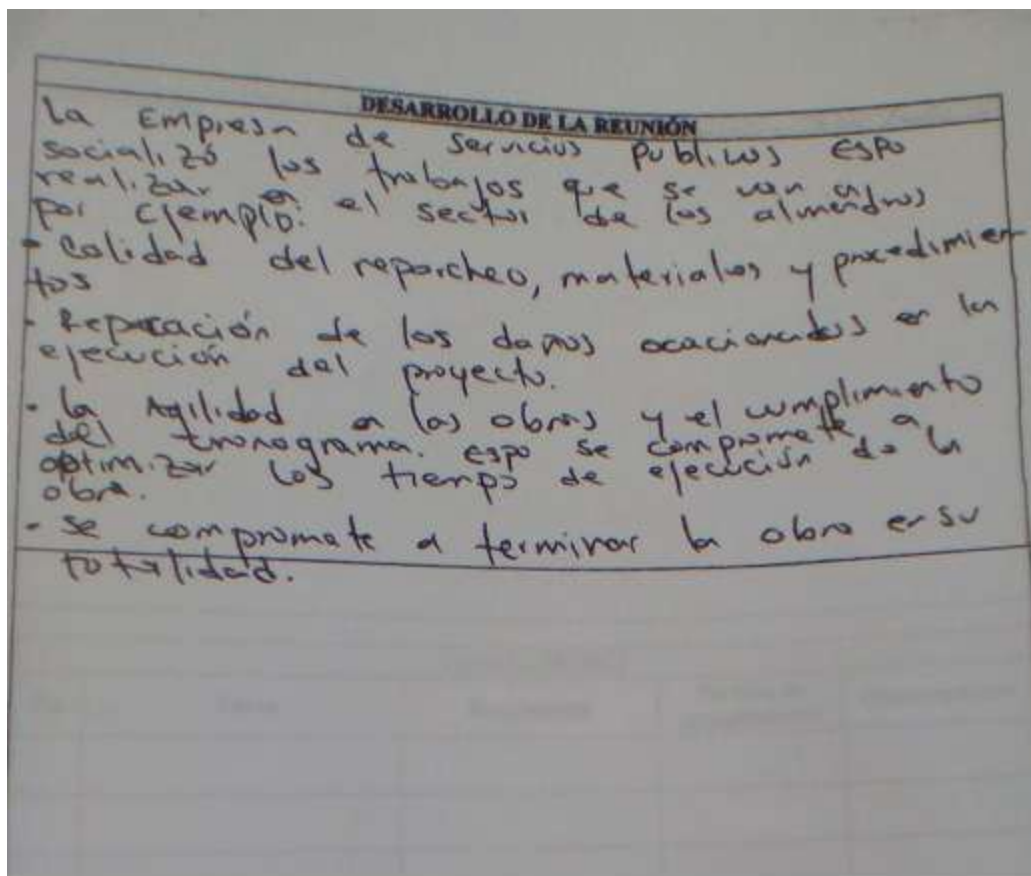 DESARROLLO DE LA REUNIÓN
la Empresa de Servicios Publicos ESPO
socializó los trabajos que se van a
realizar en el sector de los almendros
por ejemplo:
- Calidad del reparcheo, materiales y procedimien-
tos
- Reparación de los daños ocacionados en la
ejecución del proyecto.
- la Agilidad en las obras y el cumplimiento
del cronograma. espo se compromete a
optimizar los tiempos de ejecución de la
obra.
- se compromete a terminar la obra en su
totalidad.